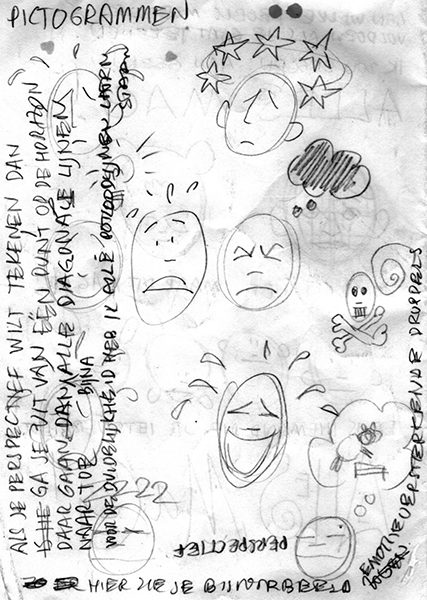 PICTOGRAMMEN
ALS JE PERSPECTIEF WILT TEKENEN DAN
GA JE UIT VAN EEN PUNT OP DE HORIZON
DAAR GAAN DAN ALLE DIAGONALE LIJNEN
NAAR TOE BIJNA
VOOR DE DUIDELIJKHEID HEB IK ALLE POTLOODLIJNEN LATEN
STAAN
ZZZZ
PERSPECTIEF
HIER ZIE JE BIJVOORBEELD
EMOTIE VERSTERKENDE DRUPPELS